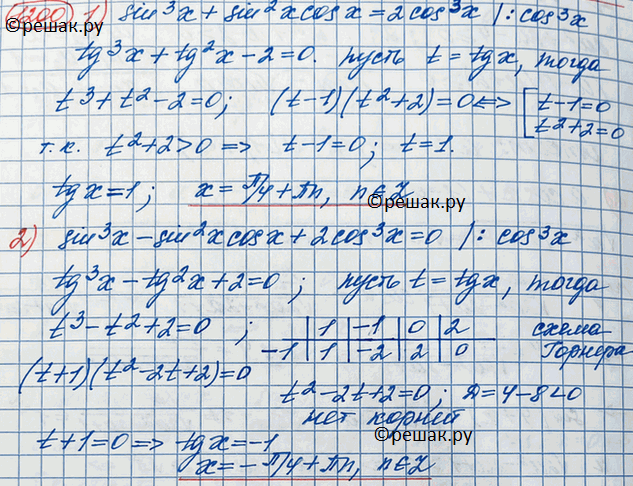 1200 1) sin³x + sin²x cosx = 2cos³x |: cos³x
©решак.ру
tg³x + tg²x - 2 = 0. пусть t = tgx, тогда
t³ + t² - 2 = 0; (t-1)(t²+2) = 0 <=> [t-1=0
t²+2=0
т.к. t²+2>0 => t-1=0; t=1.
tgx = 1; x = π/4 + πn, n∈Z
©решак.ру
2) sin³x - sin²x cosx + 2cos³x = 0 |: cos³x
tg³x - tg²x + 2 = 0; пусть t = tgx, тогда
t³ - t² + 2 = 0; | 1 | -1 | 0 | 2 схема
-1 | 1 | -2 | 2 | 0 Горнера
(t+1)(t²-2t+2)=0
t²-2t+2=0; Д=4-8<0
нет корней
©решак.ру
t+1=0 => tgx=-1
x = -π/4 + πn, n∈Z